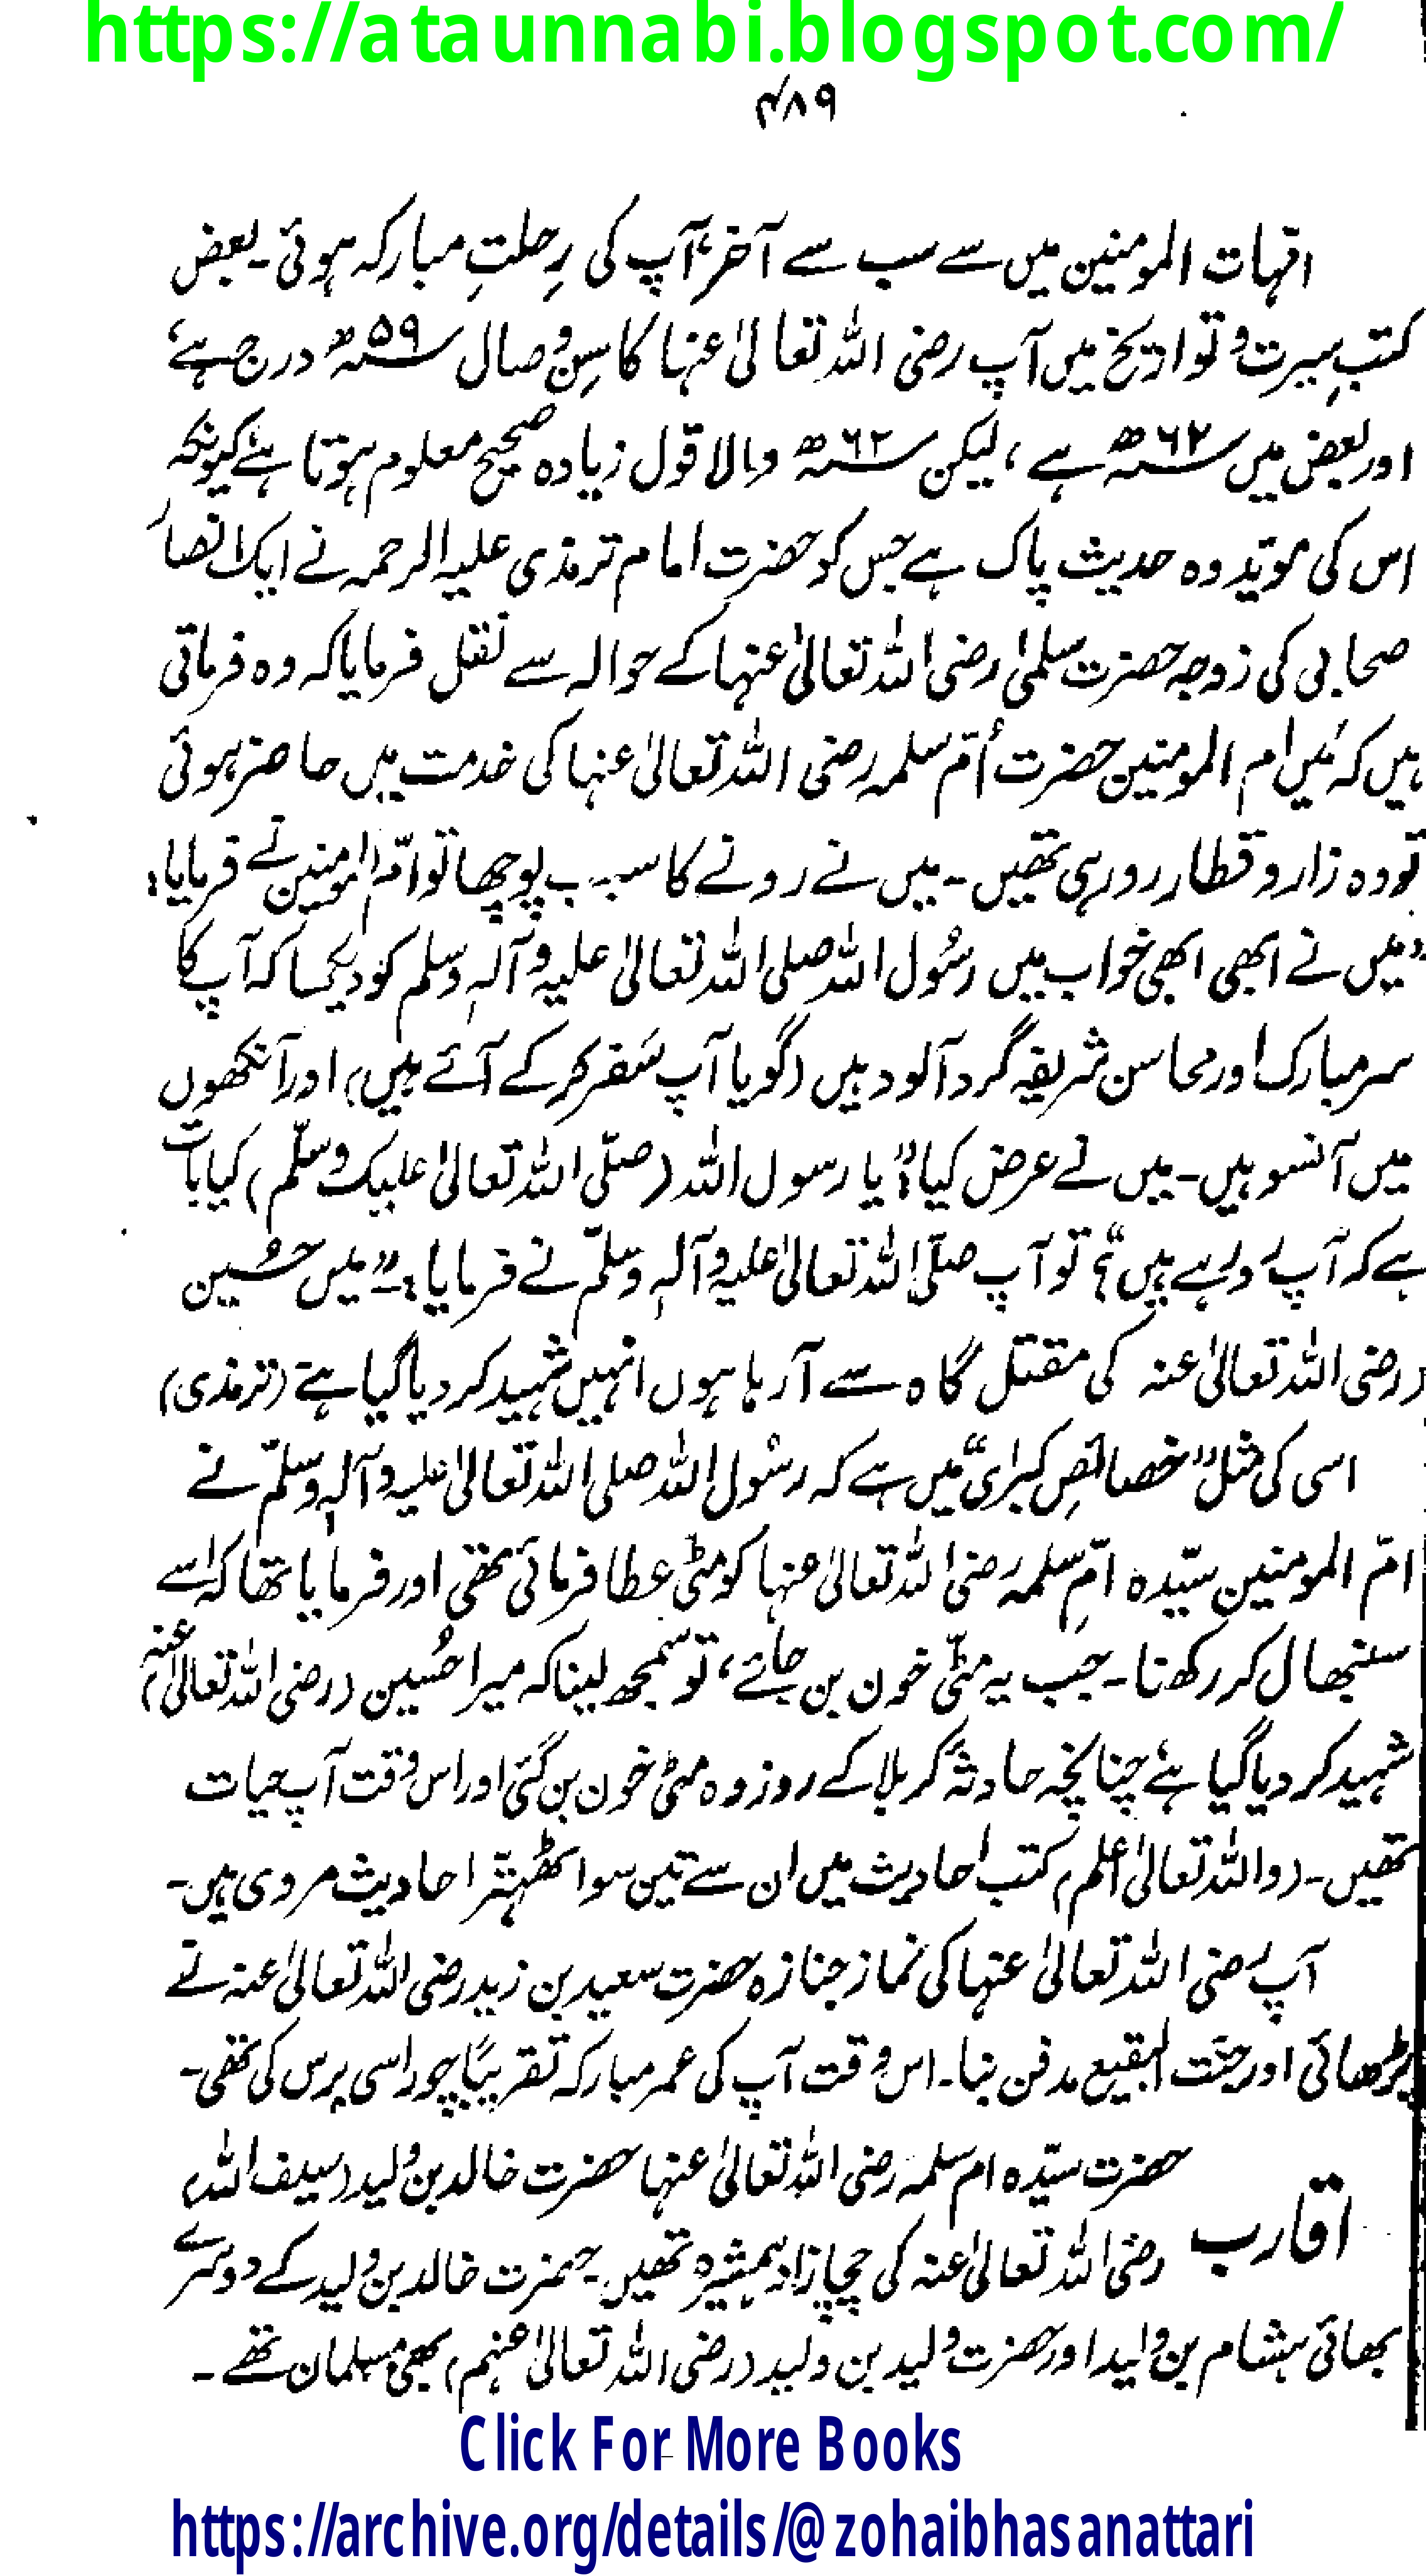 https://ataunnabi.blogspot.com/
۴۸۹
امّہات المومنین میں سے سب سے آخر، آپ کی رِحلتِ مبارکہ ہوئی۔ بعض
کتبِ سیرت و تواریخ میں آپ رضی اللہ تعالیٰ عنہا کا سِن وصال ۵۹ھ درج ہے،
اور بعض میں ۶۲ھ ہے، لیکن ۶۲ھ والا قول زیادہ صحیح معلوم ہوتا ہے، کیونکہ
اس کی موّید وہ حدیث پاک ہے جس کو حضرت امام ترمذی علیہ الرحمہ نے ایک انصار
صحابی کی زوجہ حضرت سلمیٰ رضی اللہ تعالیٰ عنہا کے حوالہ سے نقل فرمایا کہ وہ فرماتی
ہیں کہ مَیں ام المومنین حضرت اُمّ سلمہ رضی اللہ تعالیٰ عنہا کی خدمت میں حاضر ہوئی
تو وہ زار و قطار رو رہی تھیں۔ میں نے رونے کا سبب پوچھا تو امّ المومنین نے فرمایا:
”میں نے ابھی ابھی خواب میں رسُول اللہ صلی اللہ تعالیٰ علیہ وآلہٖ وسلم کو دیکھا کہ آپ کا
سر مبارک اور محاسن شریفہ گرد آلود ہیں (گویا آپ سَفر کر کے آئے ہیں) اور آنکھوں
میں آنسو ہیں۔ میں نے عرض کیا: ”یا رسول اللہ (صلّی اللہ تعالیٰ علیک وسلّم) کیا بات
ہے کہ آپ رو رہے ہیں“؟ تو آپ صلّی اللہ تعالیٰ علیہ وآلہٖ وسلّم نے فرمایا:۔ ”میں حُسین
(رضی اللہ تعالیٰ عنہ کی مقتل گاہ سے آ رہا ہوں انہیں شہید کر دیا گیا ہے (ترمذی)
اسی کی مثل ”خصائصِ کبرٰی“ میں ہے کہ رسُول اللہ صلی اللہ تعالیٰ علیہ وآلہٖ وسلّم نے
امّ المومنین سیّدہ امِّ سلمہ رضی اللہ تعالیٰ عنہا کو مٹی عطا فرمائی تھی اور فرمایا تھا کہ اسے
سنبھال کر رکھنا۔ جب یہ مٹّی خون بن جائے، تو سمجھ لینا کہ میرا حُسین (رضی اللہ تعالیٰ عنہ)
شہید کر دیا گیا ہے، چنانچہ حادثۂ کربلا کے روز وہ مٹی خون بن گئی اور اس وقت آپ حیات
تھیں۔ (واللہ تعالیٰ اعلم) کتب احادیث میں ان سے تین سو اٹھہتّر احادیث مروی ہیں۔
آپ رضی اللہ تعالیٰ عنہا کی نماز جنازہ حضرت سعید بن زید رضی اللہ تعالیٰ عنہ نے
پڑھائی اور جنّت البقیع مدفن بنا۔ اس وقت آپ کی عمر مبارکہ تقریبًا چوراسی برس کی تھی۔
اقارب حضرت سیّدہ ام سلمہ رضی اللہ تعالیٰ عنہا حضرت خالد بن ولید (سیف اللہ)
رضی اللہ تعالیٰ عنہ کی چچا زاد ہمشیرہ تھیں۔ حضرت خالد بن ولید کے دوسرے
بھائی ہشام بن ولید اور حضرت ولید بن ولید (رضی اللہ تعالیٰ عنہم) بھی مسلمان تھے۔
Click For More Books
https://archive.org/details/@zohaibhasanattari